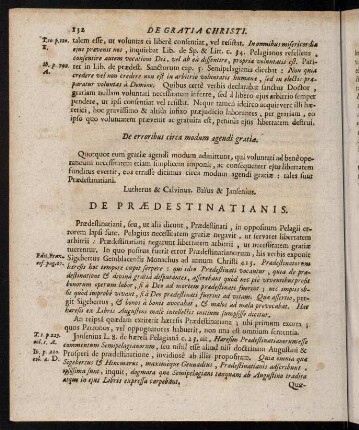 132 DE GRATIA CHRISTI.
talem esse, ut voluntas ei liberè consentiat, vel resistat. In omnibus misericordia
ejus prævenit nos, inquiebat Lib. de Sp. & Litt. c. 34. Pelagianos refellens,
consentire autem vocationi Dei, vel ab eâ dissentire, propriæ voluntatis est. Pari-
ter in Lib. de prædest. Sanctorum cap. 5. Semipelagianos dicebat: Non quia
credere vel non credere non est in arbitrio voluntatis humanæ, sed in electis præ-
paratur voluntas à Domino. Quibus certè verbis declarabat sanctus Doctor,
gratiam nullam voluntati necessitatem inferre, sed à libero ejus arbitrio semper
pendere, ut ipsi consentiat vel resistat. Neque tamen
rici, hoc gravissimo & aliàs justo præjudicio laborantes, per gratiam, eo
ipso quo voluntatem præveniat ac gratuita est, penitùs ejus libertatem destrui.
De erroribus circa modum agendi gratiæ.
Quotquot eum gratiæ agendi modum admittunt, qui voluntati ad benè ope-
randum necessitatem etiam simplicem imponit, ac consequenter ejus libertatem
funditus evertit, eos errasse dicimus circa modum agendi gratiæ: tales sunt
Prædestinatiani.
Lutherus & Calvinus. Baius & Jansenius.
DE PRÆDESTINATIANIS.
Prædestinatiani, seu, ut alii dicunt, Prædestinati, in oppositum Pelagii er-
rorem lapsi sunt. Pelagius necessitatem gratiæ negavit, ut servaret libertatem
arbitrii: Prædestinatiani negarunt libertatem arbitrii, ut necessitatem gratiæ
tuerentur. In quo positus fuerit error Prædestinatianorum, his verbis exponit
Sigebertus Gemblacensis Monachus ad annum Christi 415. Prædestinatorum
hæresis hoc tempore cœpit serpere: qui ideo Prædestinati vocantur, quia de præ-
destinatione & divinâ gratiâ disputantes, asserebant quòd nec piè viventibus prosit
bonorum operum labor, si à Deo ad mortem prædestinati fuerint; nec impiis obsit
quòd improbè vivant, si à Deo prædestinati fuerint ad vitam. Quæ assertio, per-
git Sigebertus, & bonos à bono avocabat, & malos ad mala provocabat. Hæc
hæresis ex Libris Augustini malè intellectis initium sumpsisse dicitur.
An reipsâ quædam extiterit hæresis Prædestinatiana; ubi primùm exorta;
quos Patronos, vel oppugnatores habuerit, non una est omnium sententia.
Jansenius L. 8. de hæresi Pelagianâ c. 23. ait, Hæresim Prædestinatianorum esse
commentum Semipelagianorum, seu nihil esse aliud nisi doctrinam Augustini &
Prosperi de prædestinatione, invidosè ab illis propositam. Quia omnia quæ
Sigebertus & Hincmarus, maximéque Gennadius, Prædestinatis adscribunt,
ipsissima sunt, inquit, dogmata quæ Semipelagiani tanquam ab Augustino tradita
atque in ejus Libris expressa carpebant.
Quæ-